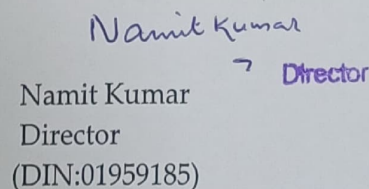 Namit Kumar
Director
Namit Kumar
Director
(DIN:01959185)